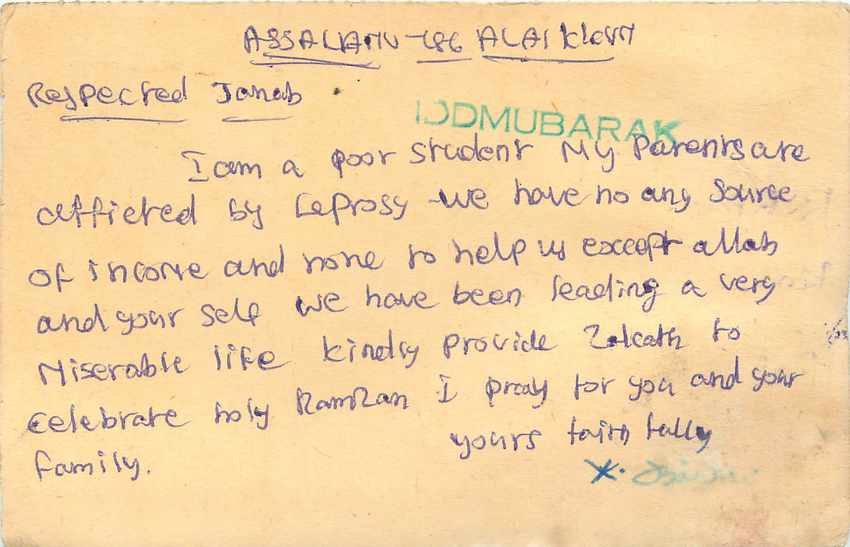 ASSALAMU-786 ALAIKUM
Respected Janab
IDDMUBARAK
I am a poor student My Parents are
afficted by Leprosy we have no any source
of income and none to help us except allah
and your self we have been leading a very
Miserable life kindly provide Zakath to
celebrate holy Ramzan I pray for you and your
family.
yours faith fully
X.